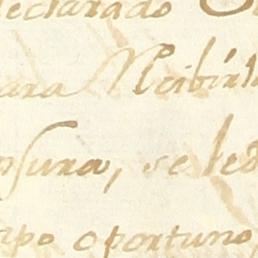 declarado
para Recibirla
nsura, se le d
mpo oportuno,